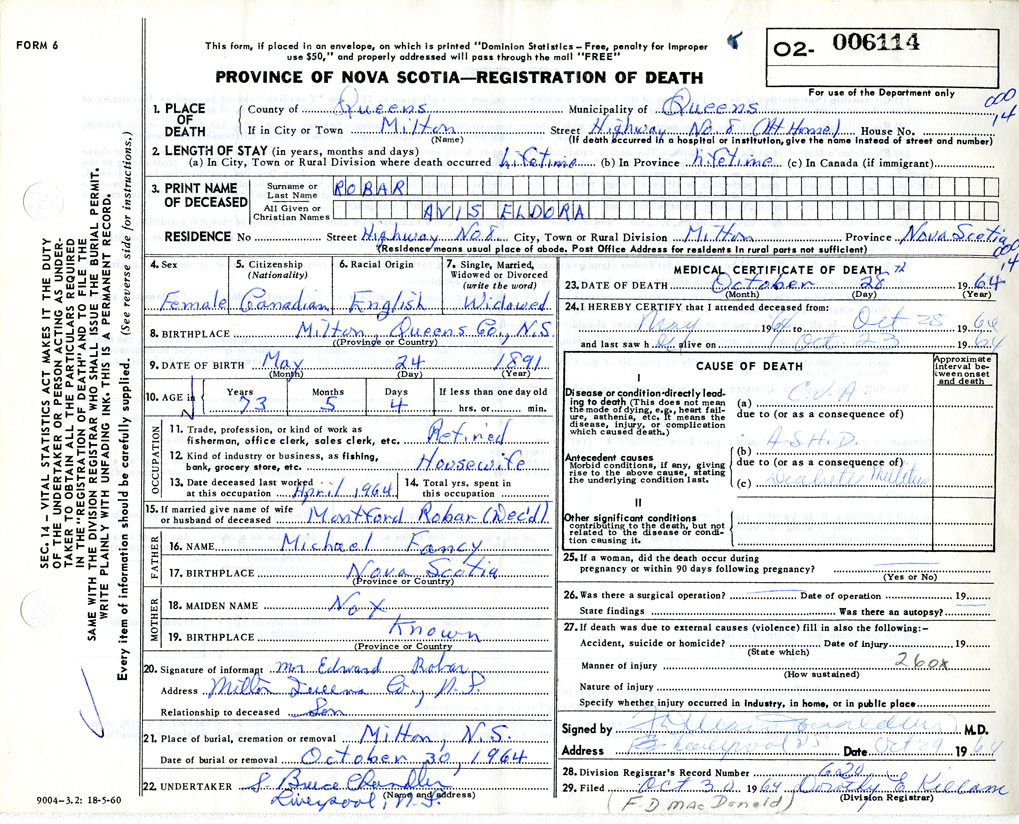 FORM 6
This form, if placed in an envelope, on which is printed "Dominion Statistics – Free, penalty for improper
use $50," and properly addressed will pass through the mail "FREE"
02- 006114
For use of the Department only
PROVINCE OF NOVA SCOTIA—REGISTRATION OF DEATH
000
14
1. PLACE OF DEATH County of Queens Municipality of Queens
If in City or Town Milton Street Highway No. 8 (At Home) House No.
(Name) (If death occurred in a hospital or institution, give the name instead of street and number)
2. LENGTH OF STAY (in years, months and days)
(a) In City, Town or Rural Division where death occurred Lifetime (b) In Province Lifetime (c) In Canada (if immigrant)
3. PRINT NAME OF DECEASED
Surname or Last Name ROBAR
All Given or Christian Names AVIS ELDORA
RESIDENCE No Street Highway No 8 City, Town or Rural Division Milton Province Nova Scotia
(Residence means usual place of abode. Post Office Address for residents in rural parts not sufficient)
000
14
4. Sex 5. Citizenship (Nationality) 6. Racial Origin 7. Single, Married, Widowed or Divorced (write the word)
Female Canadian English Widowed
8. BIRTHPLACE Milton, Queens Co., N.S.
(Province or Country)
9. DATE OF BIRTH May 24 1891
(Month) (Day) (Year)
10. AGE in Years Months Days If less than one day old
73 5 4 hrs. or min.
OCCUPATION
11. Trade, profession, or kind of work as
fisherman, office clerk, sales clerk, etc. Retired
12. Kind of industry or business, as fishing,
bank, grocery store, etc. Housewife
13. Date deceased last worked at this occupation April 1964 14. Total yrs. spent in this occupation
15. If married give name of wife
or husband of deceased Montford Robar (Dec'd)
FATHER
16. NAME Michael Fancy
17. BIRTHPLACE Nova Scotia
(Province or Country)
MOTHER
18. MAIDEN NAME Not
19. BIRTHPLACE Known
(Province or Country
20. Signature of informant Mr Edward Robar
Address Milton Queens Co, N.S.
Relationship to deceased Son
21. Place of burial, cremation or removal Milton, N.S.
Date of burial or removal October 30, 1964
22. UNDERTAKER S. Bruce Chandler
Liverpool, N.S. (Name and address)
MEDICAL CERTIFICATE OF DEATH
23. DATE OF DEATH October 28 1964
(Month) (Day) (Year)
24. I HEREBY CERTIFY that I attended deceased from:
May 1964 to Oct 28 1964
and last saw h er alive on Oct 23 1964
CAUSE OF DEATH
Approximate interval between onset and death
I
Disease or condition directly leading to death (This does not mean
the mode of dying, e.g., heart failure, asthenia, etc. It means the
disease, injury, or complication
which caused death.)
(a) C.V.A.
due to (or as a consequence of)
Antecedent causes
Morbid conditions, if any, giving
rise to the above cause, stating
the underlying condition last.
(b) A.S.H.D.
due to (or as a consequence of)
(c) Diabetes Mellitus
II
Other significant conditions
contributing to the death, but not
related to the disease or condition causing it.
25. If a woman, did the death occur during
pregnancy or within 90 days following pregnancy?
(Yes or No)
26. Was there a surgical operation? Date of operation 19
State findings Was there an autopsy?
27. If death was due to external causes (violence) fill in also the following:–
Accident, suicide or homicide? Date of injury 19
(State which)
Manner of injury 260x
(How sustained)
Nature of injury
Specify whether injury occurred in Industry, in home, or in public place
Signed by M.D.
Address Liverpool NS Date Oct 29 1964
28. Division Registrar's Record Number 6220
29. Filed Oct 30 1964 Dorothy E Killam
(F.D. MacDonald) (Division Registrar)
SEC. 14 – VITAL STATISTICS ACT MAKES IT THE DUTY
OF THE UNDERTAKER OR PERSON ACTING AS UNDER-
TAKER TO OBTAIN ALL THE PARTICULARS REQUIRED
IN THE "REGISTRATION OF DEATH" AND TO FILE THE
SAME WITH THE DIVISION REGISTRAR WHO SHALL ISSUE THE BURIAL PERMIT.
WRITE PLAINLY WITH UNFADING INK. THIS IS A PERMANENT RECORD.
Every item of information should be carefully supplied. (See reverse side for instructions.)
9004–3.2: 18-5-60